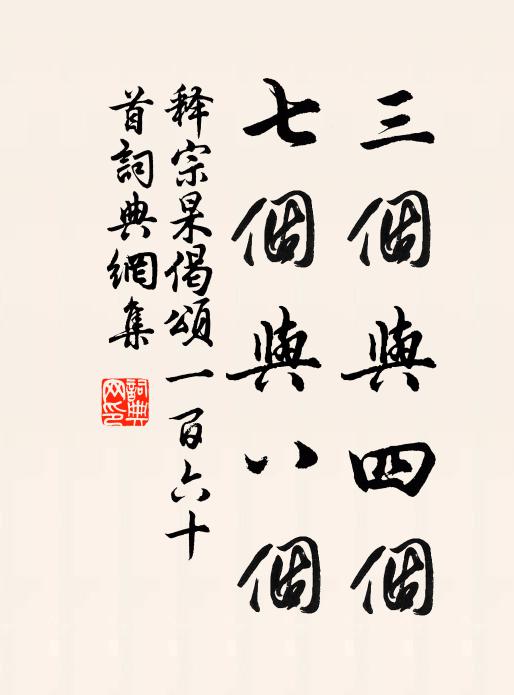 三個與四個
七個與八個
释宗杲偈頌一百六十
首詞典網集
詞典网印